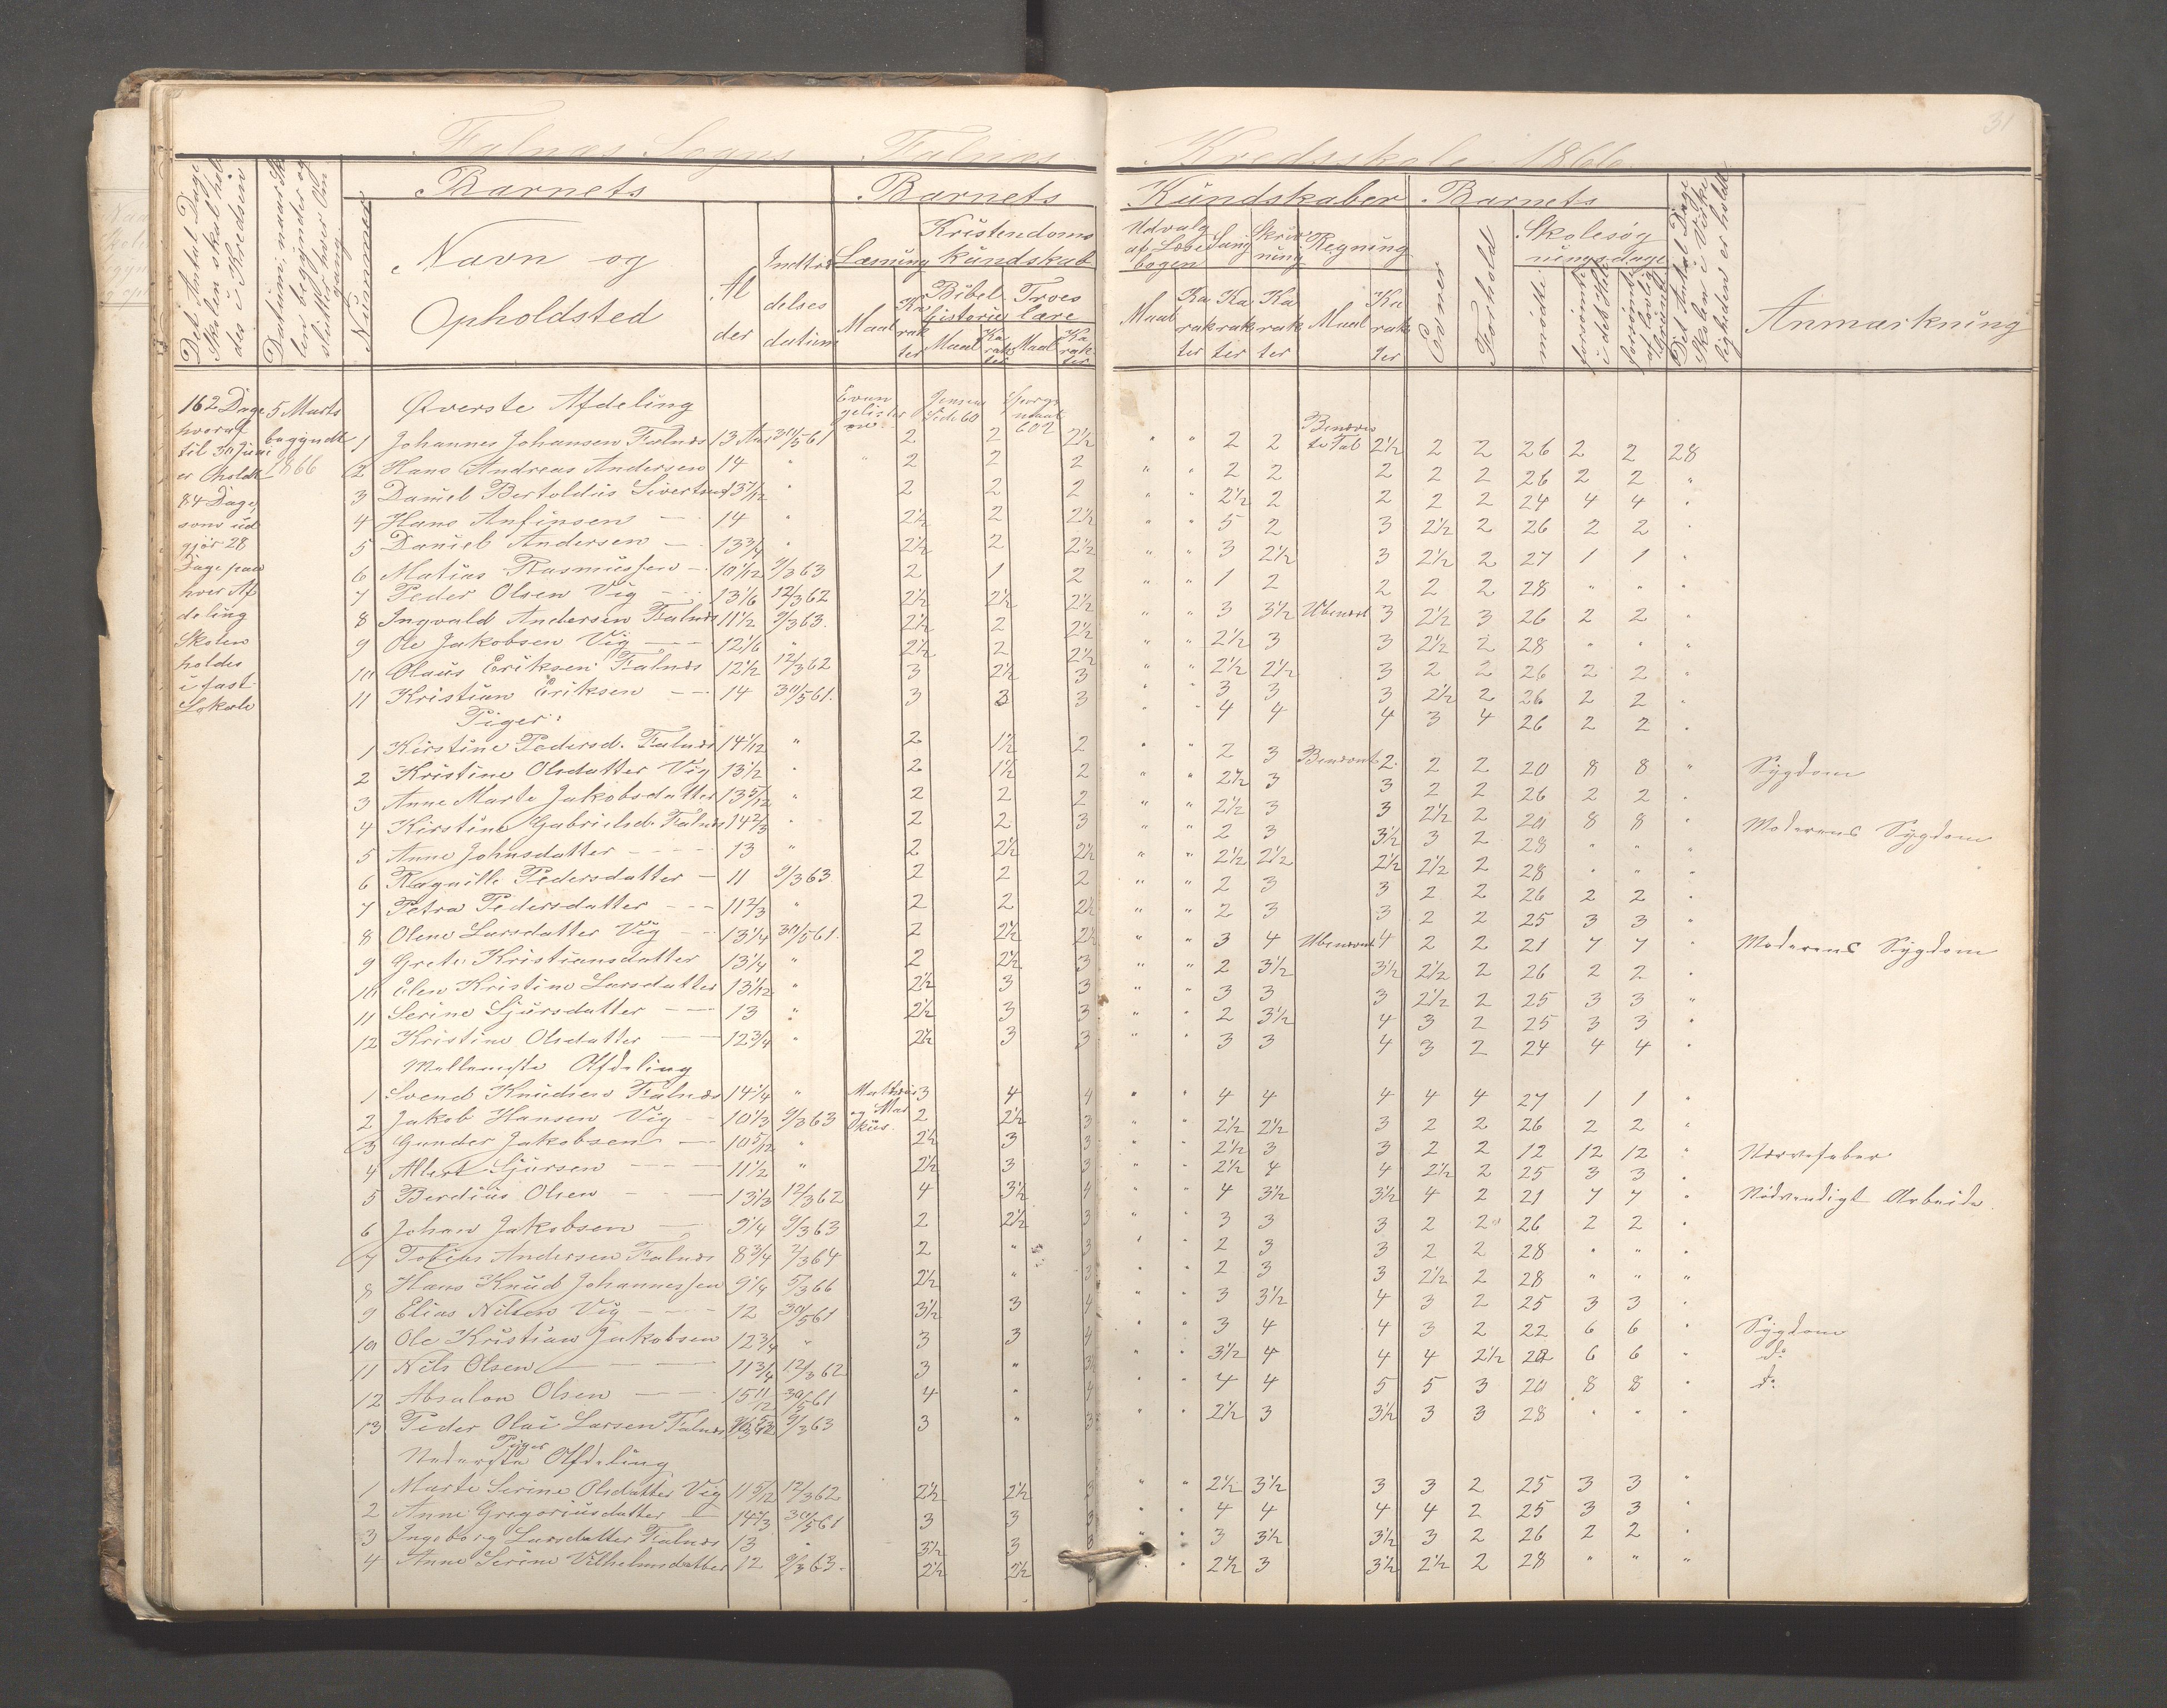 31
Falnæs Sogns Falnæs Kredsskole 1866
Det Antal Dage Skolen skal holdes i Kredsen
Datum, naar Skolen begynder og slutter hver Omgang
Barnets
Nummer
Navn og Opholdsted
Alder
Indtrædelses datum
Barnets Kundskaber
Læsning
Maal Karakter
Kristendoms kundskab
Bibel historie
Maal Karakter
Troes lære
Maal Karakter
Udvalg af Læsebogen
Maal Karakter
Sang
Karakter
Skrivning
Karakter
Regning
Maal Karakter
Barnets
Evner
Forhold
Skolesøgningsdage
mødte
forsømte i det Hele
forsømte af lovlig Grund
Det Antal Dage Skolen i Virkeligheden er holdt
Anmærkning
162 Dage
hvoraf
til 30 Juni
er Aholdt
84 Dage,
som ud
gjør 28
Dage paa
hver Af
deling
Skolen
holdes
i fast
Lokale
5 Marts
begyndte
1866
Øverste Afdeling
Evan
gelister
ne
Jensens
Side 60
Spørgs
maal
602
1 Johannes Johansen Falnæs 13 Aar 30/5 61 2 2 2½ " " 2 2 Benævn te Tal 2½ 2 2 26 2 2 28
2 Hans Andreas Andersen 14 " " 2 2 2 " " 2 2 2 2 2 26 2 2 "
3 Daniel Bertoldus Sivertsen 13 7/12 " 2 2 2 " " 2½ 2 2 2 2 24 4 4 "
4 Hans Anfinsen — 14 " 2½ 2 2½ " " 5 2 3 2½ 2 26 2 2 "
5 Daniel Andersen — 13¾ " 2½ 2 2½ " " 3 2½ 3 2½ 2 27 1 1 "
6 Matias Rasmussen — 10 1/12 9/3 63 2 1 2 " " 1 2 2 2 2 28 " " "
7 Peder Olsen Vig — 13 1/6 12/3 62 2½ 2½ 2½ " " 3 3½ Ubenævnt 3 2½ 3 26 2 2 "
8 Ingvald Andersen Falnæs 11½ 9/3 63 2½ 2 2½ " " 2½ 3 3 2½ 2 28 " " "
9 Ole Jakobsen Vig — 12 1/6 " 2½ 2 2½ " " 2½ 2½ 3 2 2 26 2 2 "
10 Olaus Eriksen Falnæs 12½ 12/3 62 3 2½ 3 " " 3 3 3 2½ 2 26 2 2 "
11 Kristian Eriksen — 14 30/5 61 3 3 3 " " 4 4 4 3 4 26 2 2 "
Piger:
1 Kirstine Pedersd. Falnæs 14 1/12 " 2 1½ 2 " " 2 3 Benævnt 2 2 2 20 8 8 " Sygdom
2 Kristine Olsdatter Vig 13½ " 2 1½ 2 " " 2½ 3 3 2 2 26 2 2 "
3 Anne Marte Jakobsdatter 13 5/12 " 2 2 2 " " 2½ 3 3 2½ 2 20 8 8 " Moderens Sygdom
4 Kirstine Gabrielsd. Falnæs 14 2/3 " 2 2 3 " " 2 3 3½ 3 2 28 " " "
5 Anne Johnsdatter — 13 " 2 2½ 2½ " " 2½ 2½ 2½ 2½ 2 28 " " "
6 Ragnille Pedersdatter — 11 9/3 63 2 2 2 " " 2 3 3 2 2 26 2 2 "
7 Petra Pedersdatter — 11 2/3 " 2 2 2½ " " 2 3 3 2 2 25 3 3 "
8 Olene Larsdatter Vig — 13¼ 30/5 61 2 2½ 2½ " " 3 4 Ubenævnt 4 2 2 21 7 7 " Moderens Sygdom
9 Grete Kristiansdatter 13¼ " 2 2½ 3 " " 2 3½ 3½ 2½ 2 26 2 2 "
10 Elen Kristine Larsdatter 13 1/12 " 2½ 3 3 " " 3 3 3 2½ 2 25 3 3 "
11 Serine Sjursdatter — 13 " 2½ 3 3 " " 2 3½ 4 3 2 25 3 3 "
12 Kristine Olsdatter — 12¾ " 2½ 3 3 " " 3 3 4 3 2 24 4 4 "
Mellemste Afdeling
1 Svend Knudsen Falnæs 14¼ " Matthæus og Mar kus 3 4 4 " " 4 4 4 4 4 27 1 1 "
2 Jakob Hansen Vig — 10 1/3 9/3 63 2 2½ 3 " " 2½ 2½ 3 2 2 26 2 2 "
3 Gunder Jakobsen — 10 5/12 " 2½ 3 3 " " 2½ 3 3 2 2 12 12 12 " Nervefeber
4 Albert Sjursen — 11½ " 2½ 3 3 " " 2½ 4 4 2½ 2 25 3 3 "
5 Berdius Olsen — 13 1/3 12/3 62 4 3½ 4 " " 4 3½ 3½ 4 2 21 7 7 " Nødvendigt Arbeide
6 Johan Jakobsen — 9¼ 9/3 63 2 2½ 3 " " 3 3 3 2 2 26 2 2 "
7 Tobias Andersen Falnæs 8¾ 7/3 64 2 " 3 " " 2 3 3 2 2 28 " " "
8 Hans Knud Johannessen 9¼ 5/3 66 2½ " 3 " " 2 3 3 2½ 2 28 " " "
9 Elias Nilsen Vig — 12 30/5 61 3½ 3 4 " " 3 3½ 4 3 2 25 3 3 "
10 Ole Kristian Jakobsen 12¾ " 3 3 4 " " 3 4 4 3 2 22 6 6 " Sygdom
11 Nils Olsen — 11¾ 12/3 62 3 " 3½ " " 3½ 4 4 4 2½ 22 6 6 " do
12 Absalon Olsen — 15 11/12 30/5 61 4 " 4 " " 4 4 5 5 3 20 8 8 " do
13 Peder Olai Larsen Falnæs 9/3 63 3 " 3 " " 2½ 3 3½ 3 3 28 " " "
Piger
Nederste Afdeling
1 Marte Serine Olsdatter Vig 11 5/12 12/3 62 2½ 2½ 3 " " 2½ 3½ 3 3 2 25 3 3 "
2 Anne Gregoriusdatter — 14 2/3 30/5 61 3 3 3 " " 4 4 4 4 2 25 3 3 "
3 Ingeborg Larsdatter Falnæs 13 " 3½ 3 3 " " 3 3½ 3½ 3 2 26 2 2 "
4 Anne Serine Vilhelmsdatter 12 9/3 63 2½ 2½ " " 2½ 3 3½ 2½ 2 28 " " "